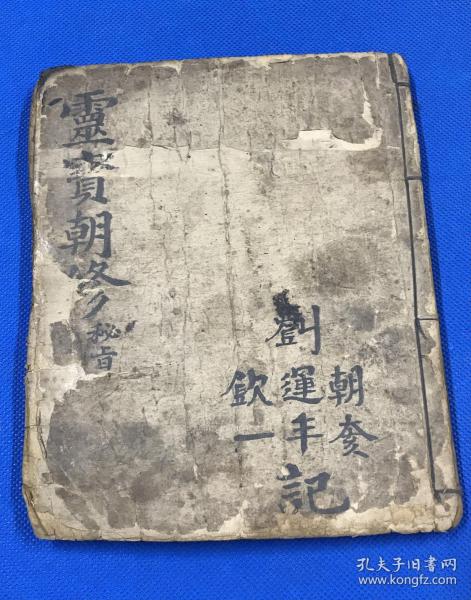 靈寳朝修
秘旨
劉
朝
運年
欽一
記
孔夫子旧书网
www.kongfz.com